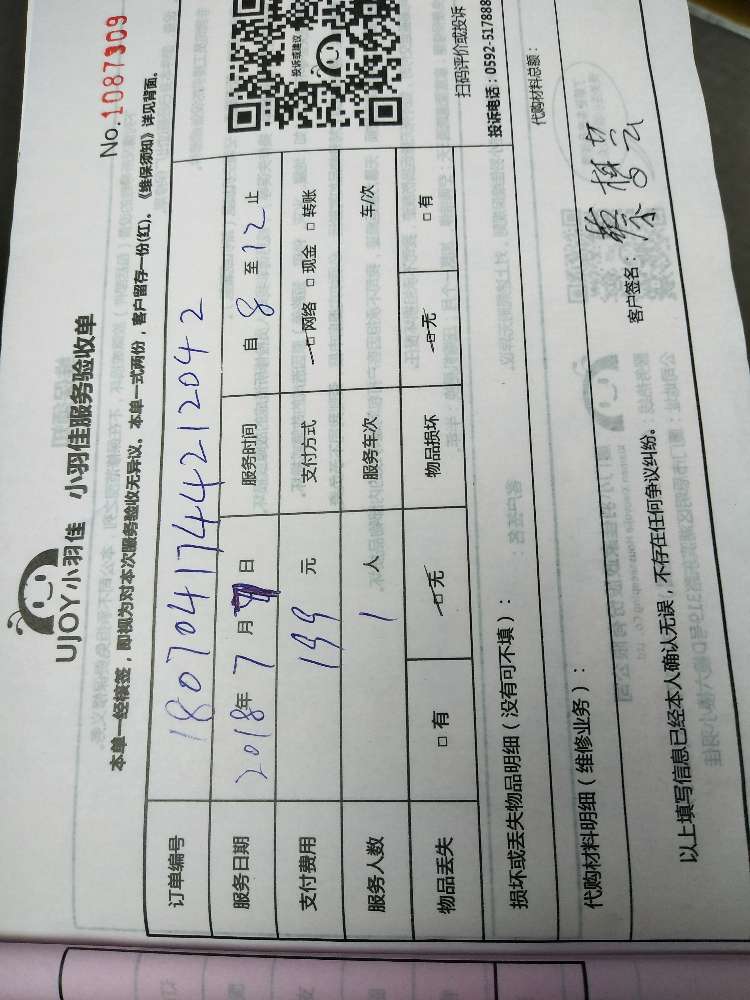 UJOY小羽佳 小羽佳服务验收单 No.1087309
本单一经核签，即视为对本次服务验收无异议。本单一式两份，客户留存一份(红)。《维保须知》详见背面。
订单编号 1807041744212042
服务日期 2018年7月 日 服务时间 自8至12止
支付费用 199元 支付方式 □网络 □现金 □转账
服务人数 1人 服务车次 车/次
物品丢失 □有 □无 物品损坏 □无 □有
投诉或建议
扫码评价或投诉
投诉电话：0592-517888
损坏或丢失物品明细（没有可不填）：
代购材料明细（维修业务）： 代购材料总额：
以上填写信息已经本人确认无误，不存在任何争议纠纷。 客户签名：蔡